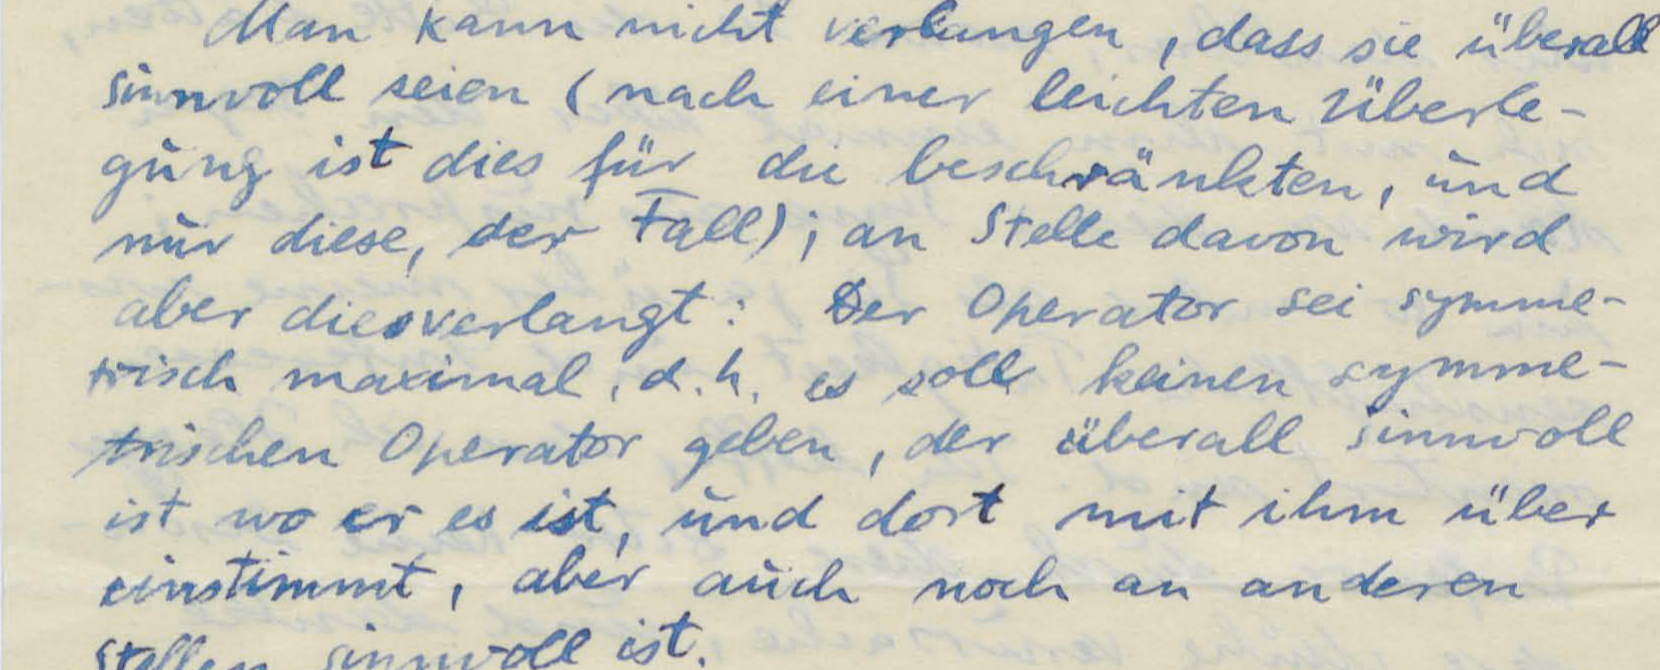 Man kann nicht verlangen, dass sie überall
sinnvoll seien (nach einer leichten Überle-
gung ist dies für die beschränkten, und
nur diese, der Fall); an Stelle davon wird
aber dies verlangt: Der Operator sei symme-
trisch maximal, d.h. es soll keinen symme-
trischen Operator geben, der überall sinnvoll
ist wo er es ist, und dort mit ihm über
einstimmt, aber auch noch an anderen
Stellen sinnvoll ist.